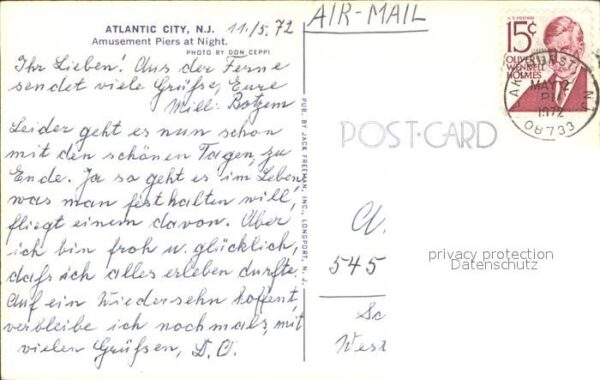 ATLANTIC CITY, N.J.
Amusement Piers at Night.
PHOTO BY DON CEPPI
11./5. 72
AIR-MAIL
U.S. POSTAGE
15¢
OLIVER
WENDELL
HOLMES
MAY 12
PM
1972
N.J.
08733
Ihr Lieben! Aus der Ferne
sendet viele Grüße, Eure
Mill: Botzem
Leider geht es nun schon
mit den schönen Tagen, zu
Ende. Ja so geht es im Leben,
was man festhalten will,
fliegt einem davon. Aber
ich bin froh u. glücklich,
daß ich alles erleben durfte.
Auf ein Wiedersehn hoffent,
verbleibe ich nochmals, mit
vielen Grüßen, D. O.
PUB. BY JACK FREEMAN, INC., LONGPORT, N. J.
POST-CARD
545
privacy protection
Datenschutz
Sc
West